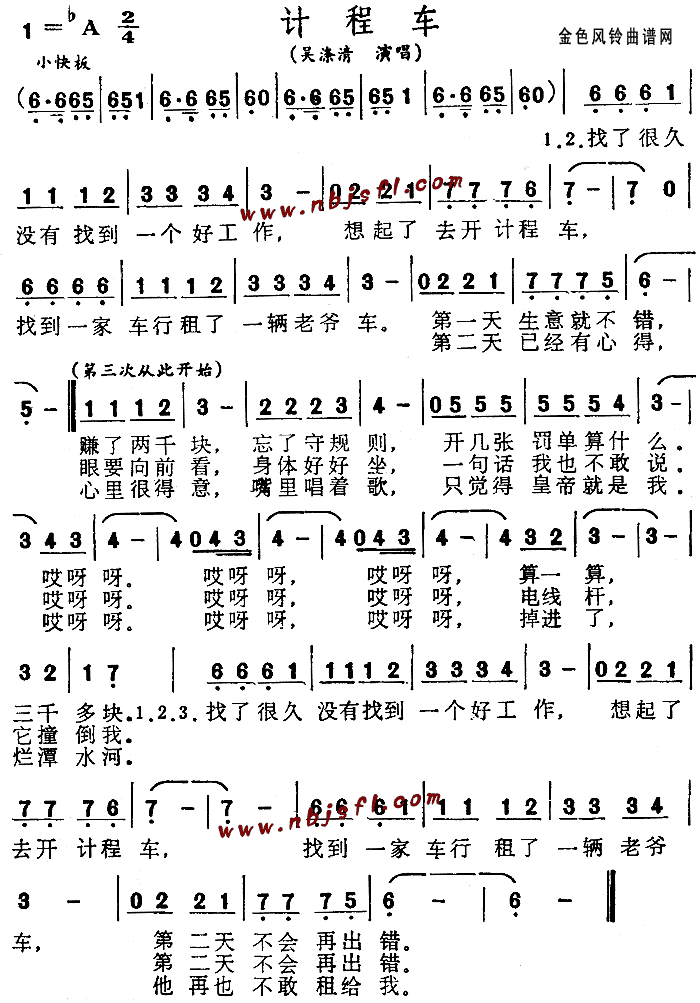 计程车
1=♭A 2/4
(吴涤清 演唱)
金色风铃曲谱网
小快板
(6·665|651|6·665|651|60|6·665|651|6·665|60)|6661|
1.2.找了很久
1112|3334|3-|022 21|7776|7-|70|
www.nbjsfl.com
没有找到一个好工作, 想起了去开计程车,
6666|1112|3334|3-|0221|7775|6-|
找到一家车行租了一辆老爷车。 第一天生意就不错,
第二天已经有心得,
(第三次从此开始)
5-‖1112|3-|2223|4-|0555|5554|3-|
赚了两千块, 忘了守规则, 开几张罚单算什么。
眼要向前看, 身体好好坐, 一句话我也不敢说。
心里很得意, 嘴里唱着歌, 只觉得皇帝就是我。
3 43|4-|4043|4-|4043|4-|4 32|3-|3-|
哎呀呀。 哎呀呀, 哎呀呀, 算一算,
哎呀呀。 哎呀呀, 哎呀呀, 电线杆,
哎呀呀。 哎呀呀, 哎呀呀, 掉进了,
32|17|6661|1112|3334|3-|0221|
三千多块.1.2.3.找了很久没有找到一个好工作, 想起了
它撞倒我。
烂潭水河。
77 76|7-|7-|66 61|11 12|33 34|
www.nbjsfl.com
去开计程车, 找到一家车行租了一辆老爷
3-|02 21|77 75|6-|6-‖
车, 第二天不会再出错。
第二天不会再出错。
他再也不敢租给我。